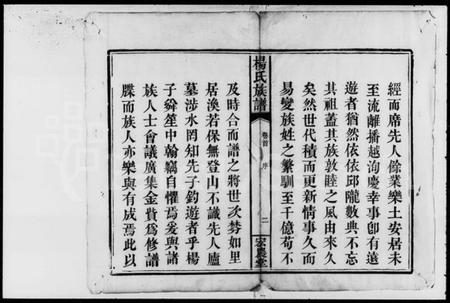 經而席先人餘業樂土安居未
至流離播越洵慶幸事卽有遠
遊者猶然依依邱隴數典不忘
其祖蓋其族敦睦之風由來久
矣然世代積而更新情事久而
易變族姓之繁馴至千億苟不
楊氏族譜
卷首 序 二
宏農堂
及時合而譜之將世次棼如里
居渙若保無登山不識先人廬
墓涉水罔知先子釣遊者乎楊
子舜笙中翰竊自懼焉爰與諸
族人士會議廣集金貲爲修譜
牒而族人亦樂與有成焉此以